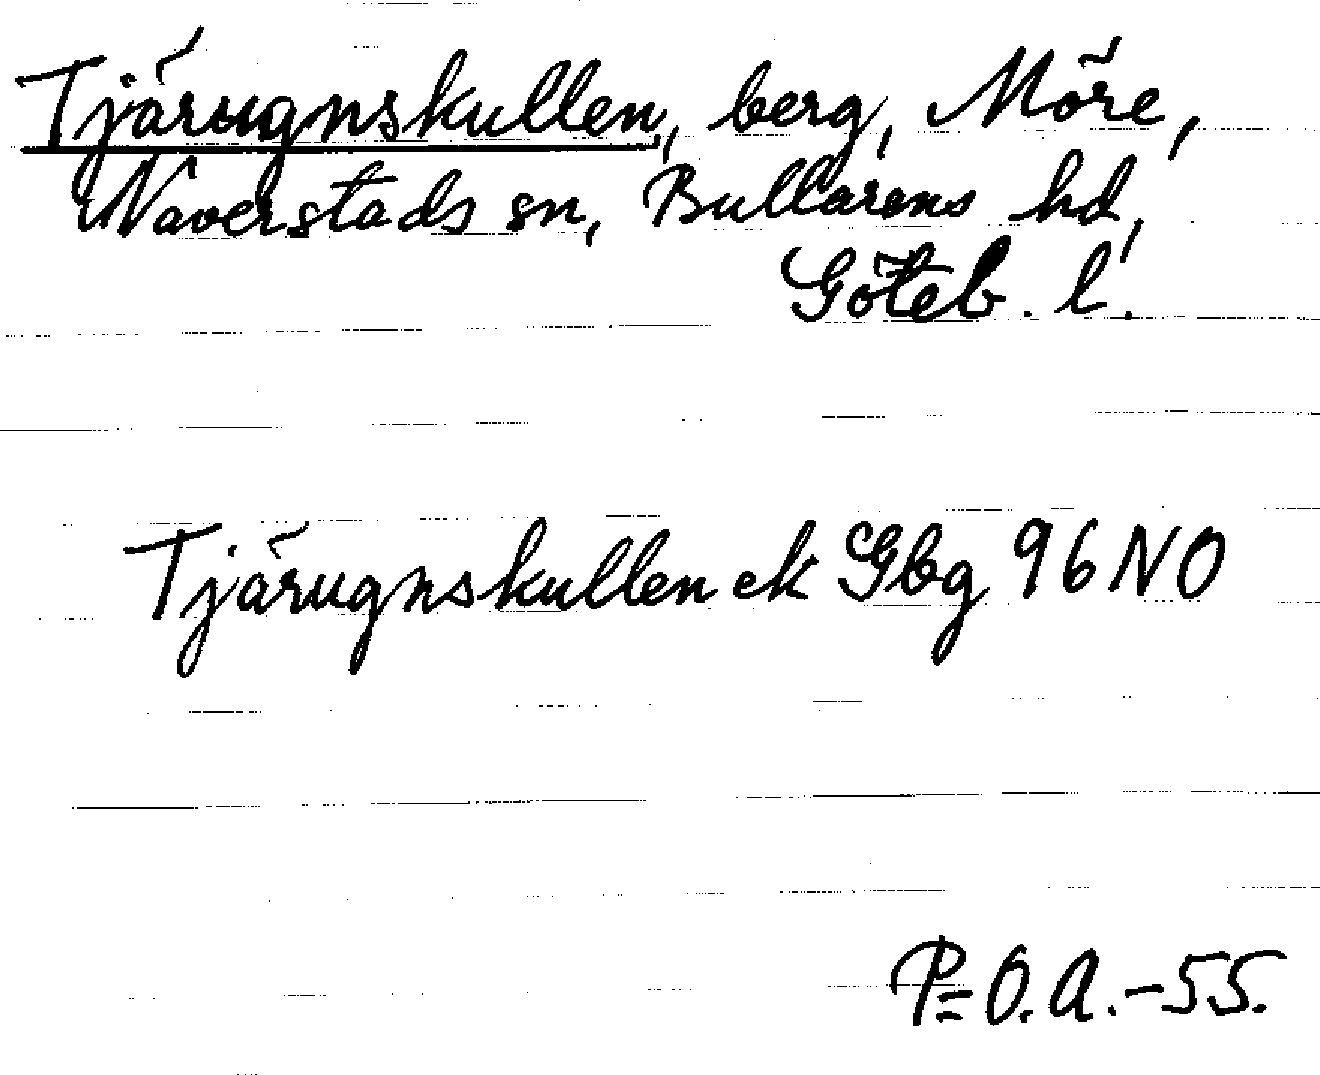 Tjärugnskullen, berg, Möre,
Naverstads sn, Bullarens hd,
Göteb. l.
Tjärugnskullen ek Gbg 96 NO
P=O.A.-55.